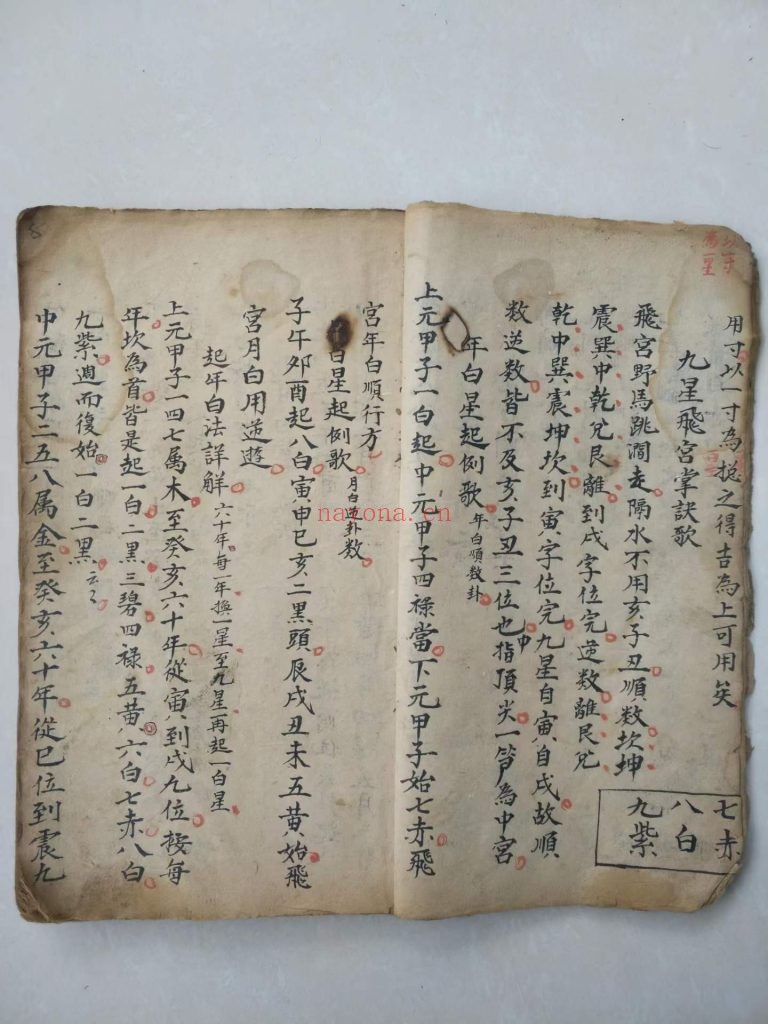 用寸以一寸為挨之得吉為上可用矣
九星飛宮掌訣歌
飛宮野馬跳澗走隔水不用亥子丑順数坎坤
震巽中乾兌艮離到戌字位完逆数離艮兌
乾中巽震坤坎到寅字位完九星自寅自戌故順
数逆数皆不及亥子丑三位也中指頂尖一笋為中宮
年白星起例歌 年白順数卦
上元甲子一白起中元甲子四禄當下元甲子始七赤飛
七赤
八白
九紫
宮年白順行方
白星起例歌 月白逆卦数
子午卯酉起八白寅申巳亥二黑頭辰戌丑未五黄始飛
宮月白用逆遊
起年白法詳解 六十年每一年換一星至九星再起一白星
上元甲子一四七属木至癸亥六十年從寅到戌九位接每
年坎為首皆是起一白二黑三碧四禄五黄六白七赤八白
九紫週而復始一白二黑云々
中元甲子二五八属金至癸亥六十年從巳位到震九
nazona.cn